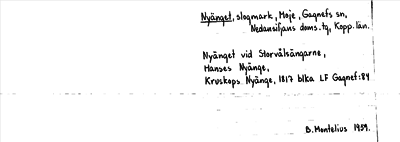 Nyänget, slogmark, Moje, Gagnefs sn,
Nedansiljans doms.tg, Kopp. län.
Nyänget vid Storvålsängarne,
Hanses Nyänge,
Kruskops Nyänge, 1817 blka LF Gagnef:84
B. Montelius 1959.